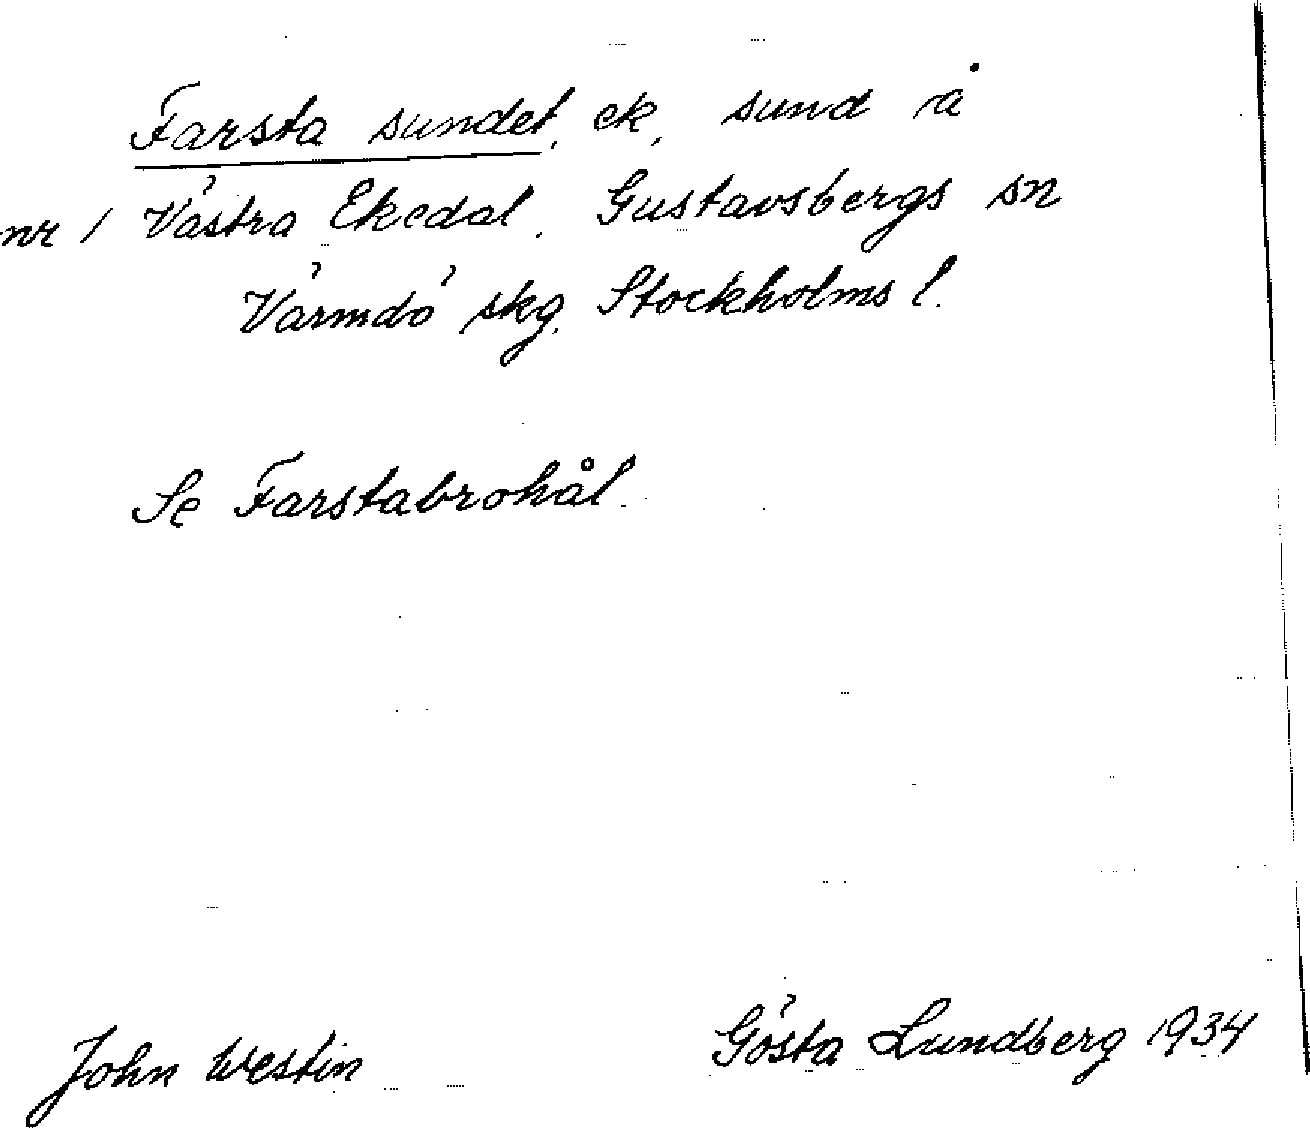 Farsta sundet, ek, sund å
nr 1 Västra Ekedal, Gustavsbergs sn
Värmdö skg. Stockholms l.
Se Farstabrohål.
John Westin
Gösta Lundberg 1934